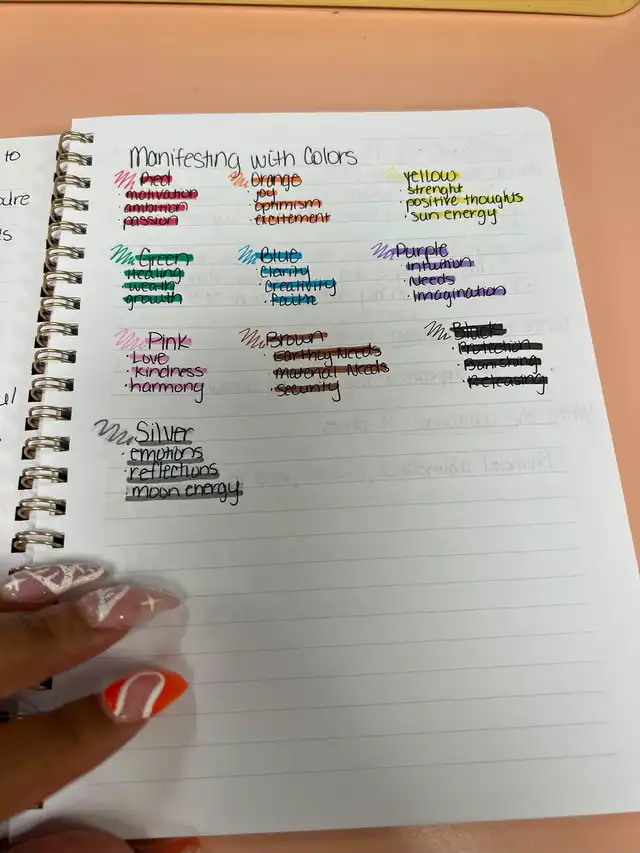 to
Manifesting with Colors
Red
motivation
ambition
passion
Orange
joy
optimism
excitement
yellow
strenght
positive thoughts
sun energy
Green
Healing
wealth
growth
Blue
Clarity
Creativity
Faith
Purple
Intuition
Needs
Imagination
Pink
Love
kindness
harmony
Brown
Earthly Needs
material Needs
security
Black
Protection
Banishing
Releasing
Silver
emotions
reflections
moon energy